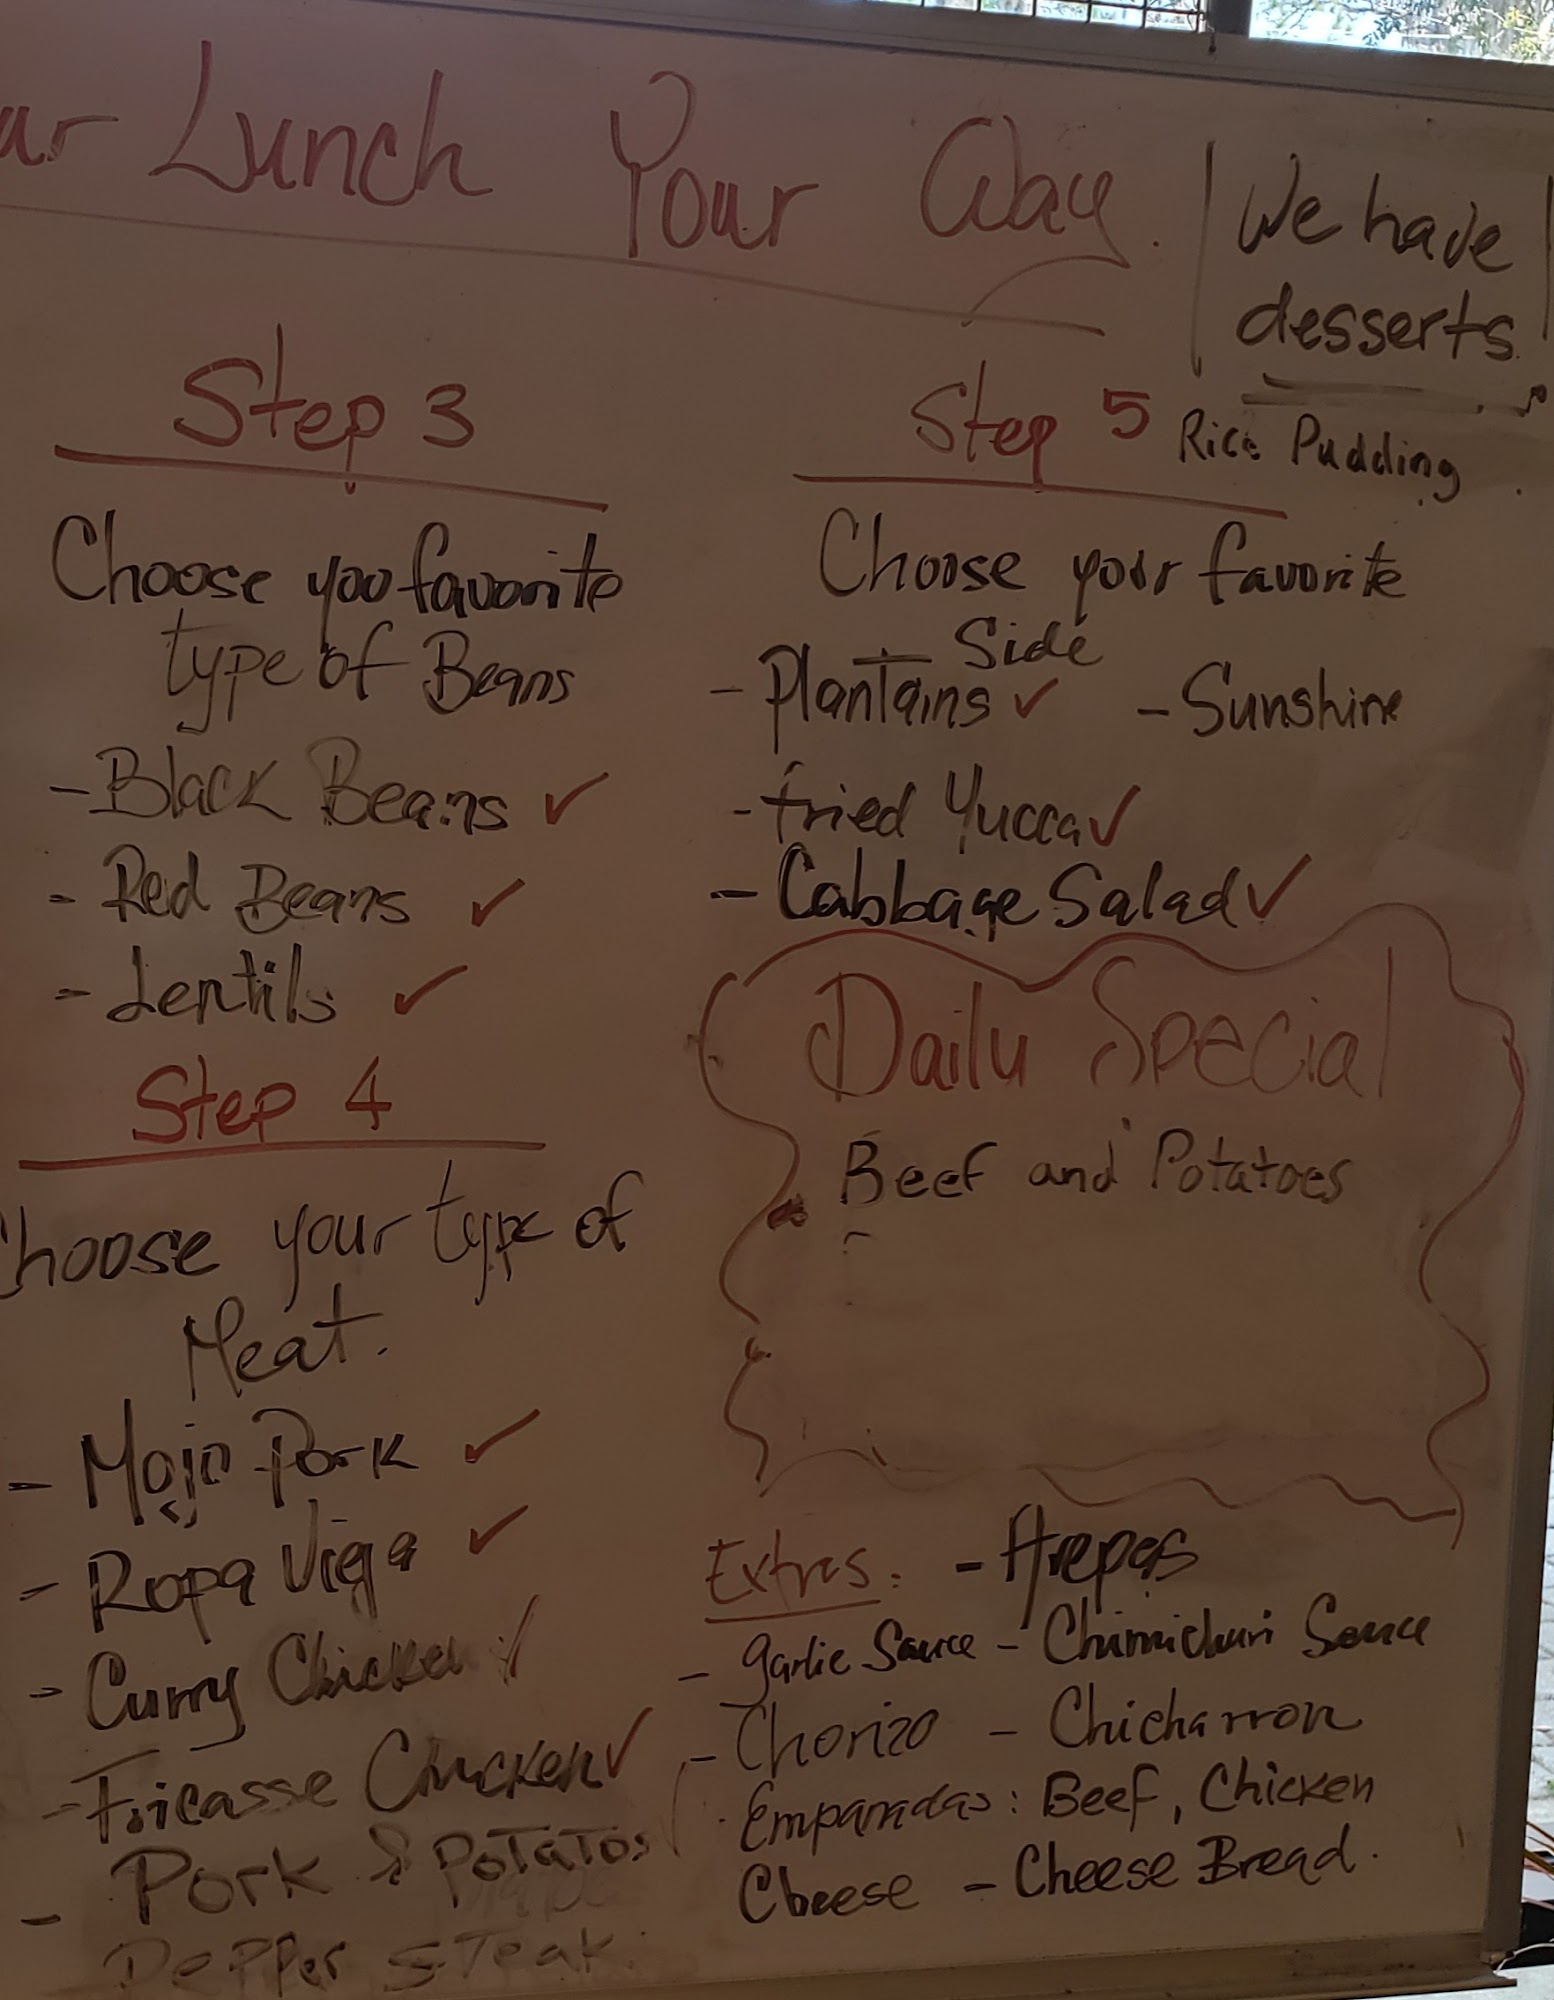 ur Lunch Your Way.
We have
desserts.
Rice Pudding
Step 3
Choose you favorite
type of Beans
- Black Beans ✓
- Red Beans ✓
- Lentils ✓
Step 4
Choose your type of
Meat.
- Mojo Pork ✓
- Ropa Vieja ✓
- Curry Chicken ✓
- Fricasse Chicken ✓
- Pork & Potatos
Pepper steak.
Step 5
Choose your favorite
Side
- Plantains ✓ - Sunshine
- fried Yucca ✓
- Cabbage Salad ✓
Daily Special
Beef and Potatoes
Extras: - Arepas
- garlic Sauce - Chimichuri Sauce
- Chorizo - Chicharron
. Empanadas: Beef, Chicken
Cheese - Cheese Bread.